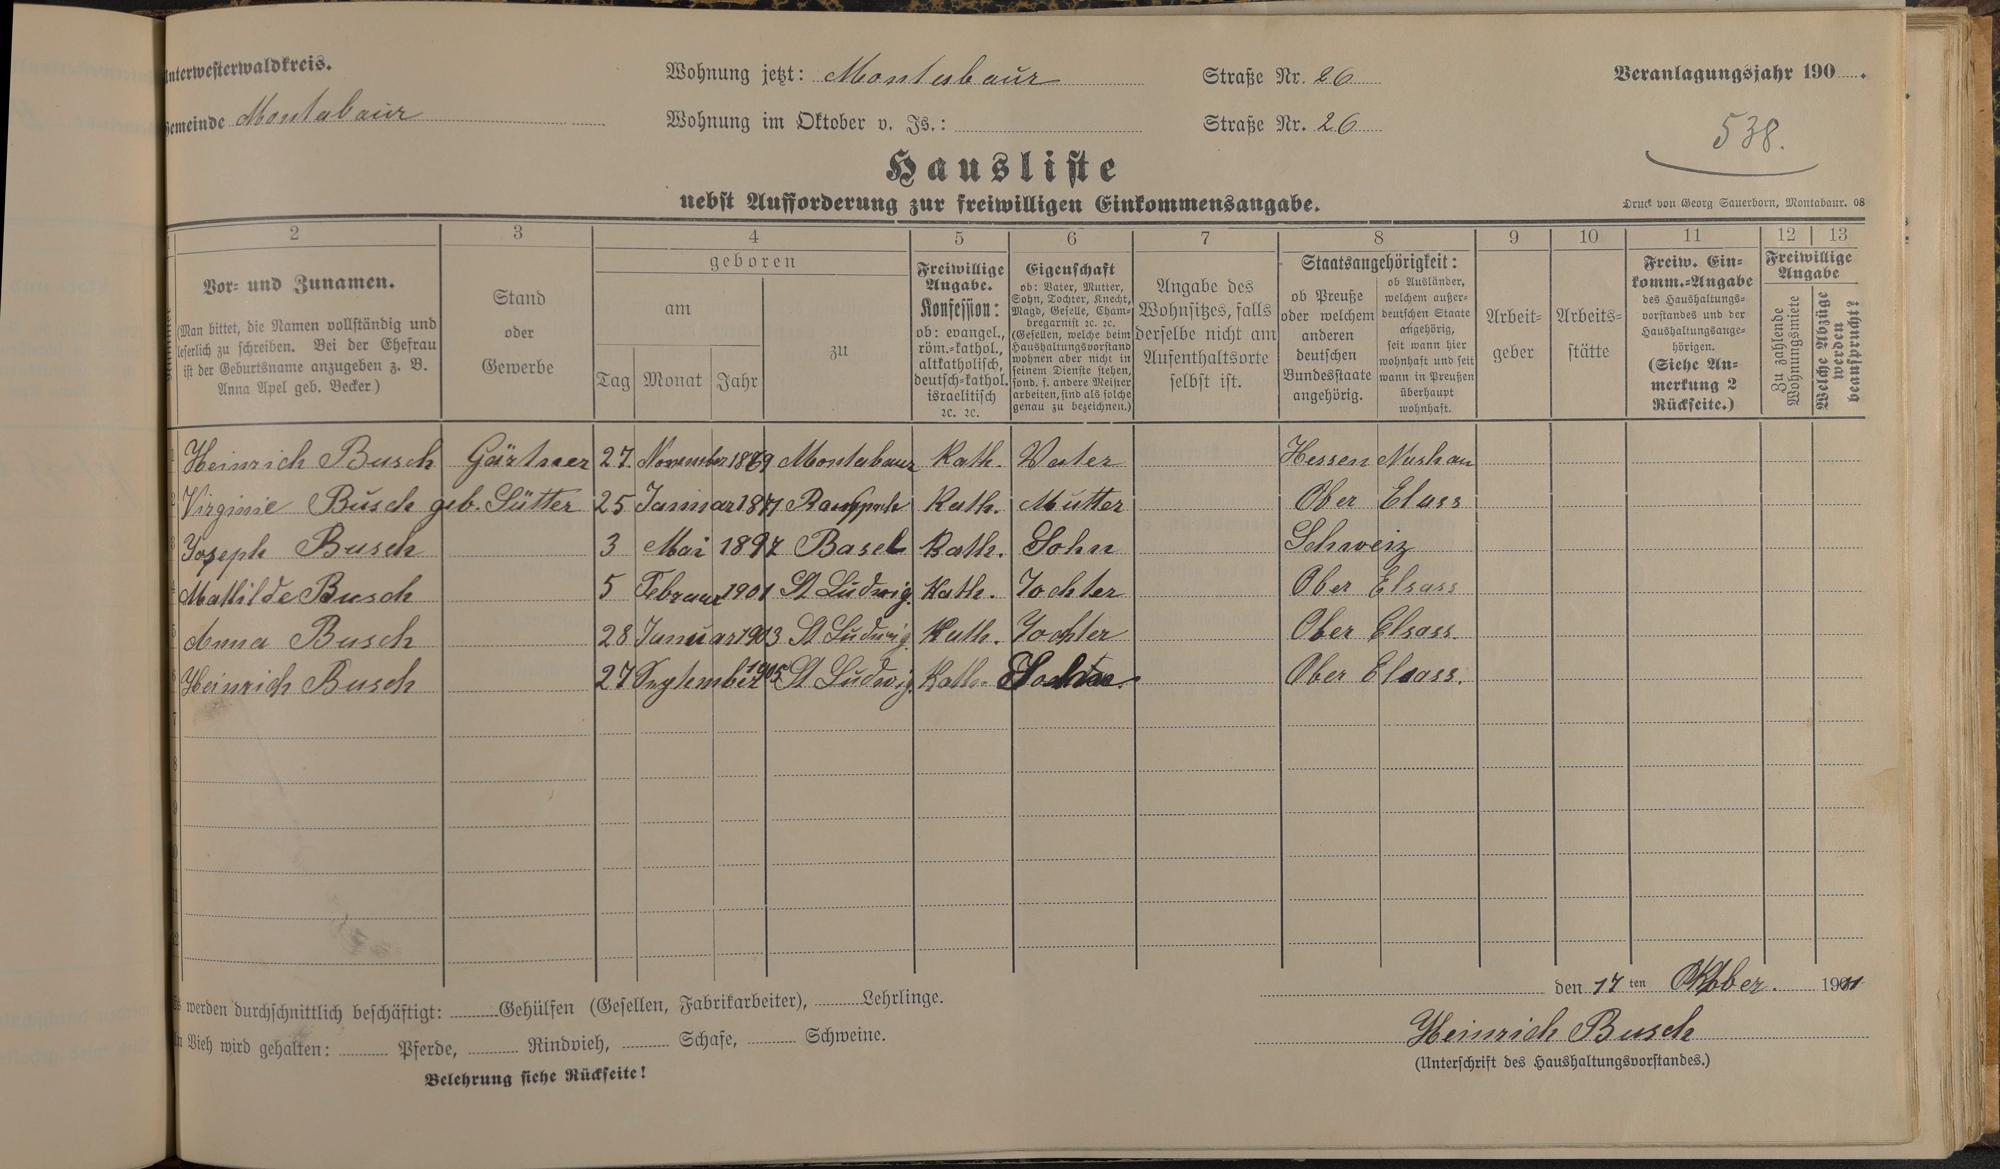 Unterwesterwaldkreis.
Gemeinde Montabaur
Wohnung jetzt: Montabaur Straße Nr. 26
Wohnung im Oktober v. Js.: Straße Nr. 26
Veranlagungsjahr 190 .
538.
Hausliste
nebst Aufforderung zur freiwilligen Einkommensangabe.
Druck von Georg Sauerborn, Montabaur. 08
2 3 4 5 6 7 8 9 10 11 12 13
Vor- und Zunamen.
(Man bittet, die Namen vollständig und
leserlich zu schreiben. Bei der Ehefrau
ist der Geburtsname anzugeben z. B.
Anna Apel geb. Becker.)
Stand
oder
Gewerbe
geboren
am
Tag Monat Jahr
zu
Freiwillige
Angabe.
Konfession:
ob: evangel.,
röm.-kathol.,
altkatholisch,
deutsch-kathol.
israelitisch
ꝛc. ꝛc.
Eigenschaft
ob: Vater, Mutter,
Sohn, Tochter, Knecht,
Magd, Geselle, Cham-
bregarnist ꝛc. ꝛc.
(Gesellen, welche beim
Haushaltungsvorstand
wohnen aber nicht in
seinem Dienste stehen,
sond. f. andere Meister
arbeiten, sind als solche
genau zu bezeichnen.)
Angabe des
Wohnsitzes, falls
derselbe nicht am
Aufenthaltsorte
selbst ist.
Staatsangehörigkeit:
ob Preuße
oder welchem
anderen
deutschen
Bundesstaate
angehörig.
ob Ausländer,
welchem außer-
deutschen Staate
angehörig,
seit wann hier
wohnhaft und seit
wann in Preußen
überhaupt
wohnhaft.
Arbeit-
geber
Arbeits-
stätte
Freiw. Ein-
komm.-Angabe
des Haushaltungs-
vorstandes und der
Haushaltungsange-
hörigen.
(Siehe An-
merkung 2
Rückseite.)
Freiwillige
Angabe
Zu zahlende
Wohnungsmiete
Welche Abzüge
werden
beansprucht?
1 Heinrich Busch Gärtner 27. November 1869 Montabaur Kath. Vater Hessen Nashau
2 Virginie Busch geb. Sütter 25 Januar 1871 Kath. Mutter Ober Elsass
3 Joseph Busch 3 Mai 1897 Basel Kath. Sohn Schweiz
4 Mathilde Busch 5 Februar 1901 St Ludwig. Kath. Tochter Ober Elsass
5 Anna Busch 28 Januar 1903 St Ludwig. Kath. Tochter Ober Elsass.
6 Heinrich Busch 27 September 1905 St Ludwig. Kath. Ober Elsass.
7
8
9
10
11
12
Es werden durchschnittlich beschäftigt: Gehülfen (Gesellen, Fabrikarbeiter), Lehrlinge.
An Vieh wird gehalten: Pferde, Rindvieh, Schafe, Schweine.
Belehrung siehe Rückseite!
den 17 ten Oktober. 19
Heinrich Busch
(Unterschrift des Haushaltungsvorstandes.)